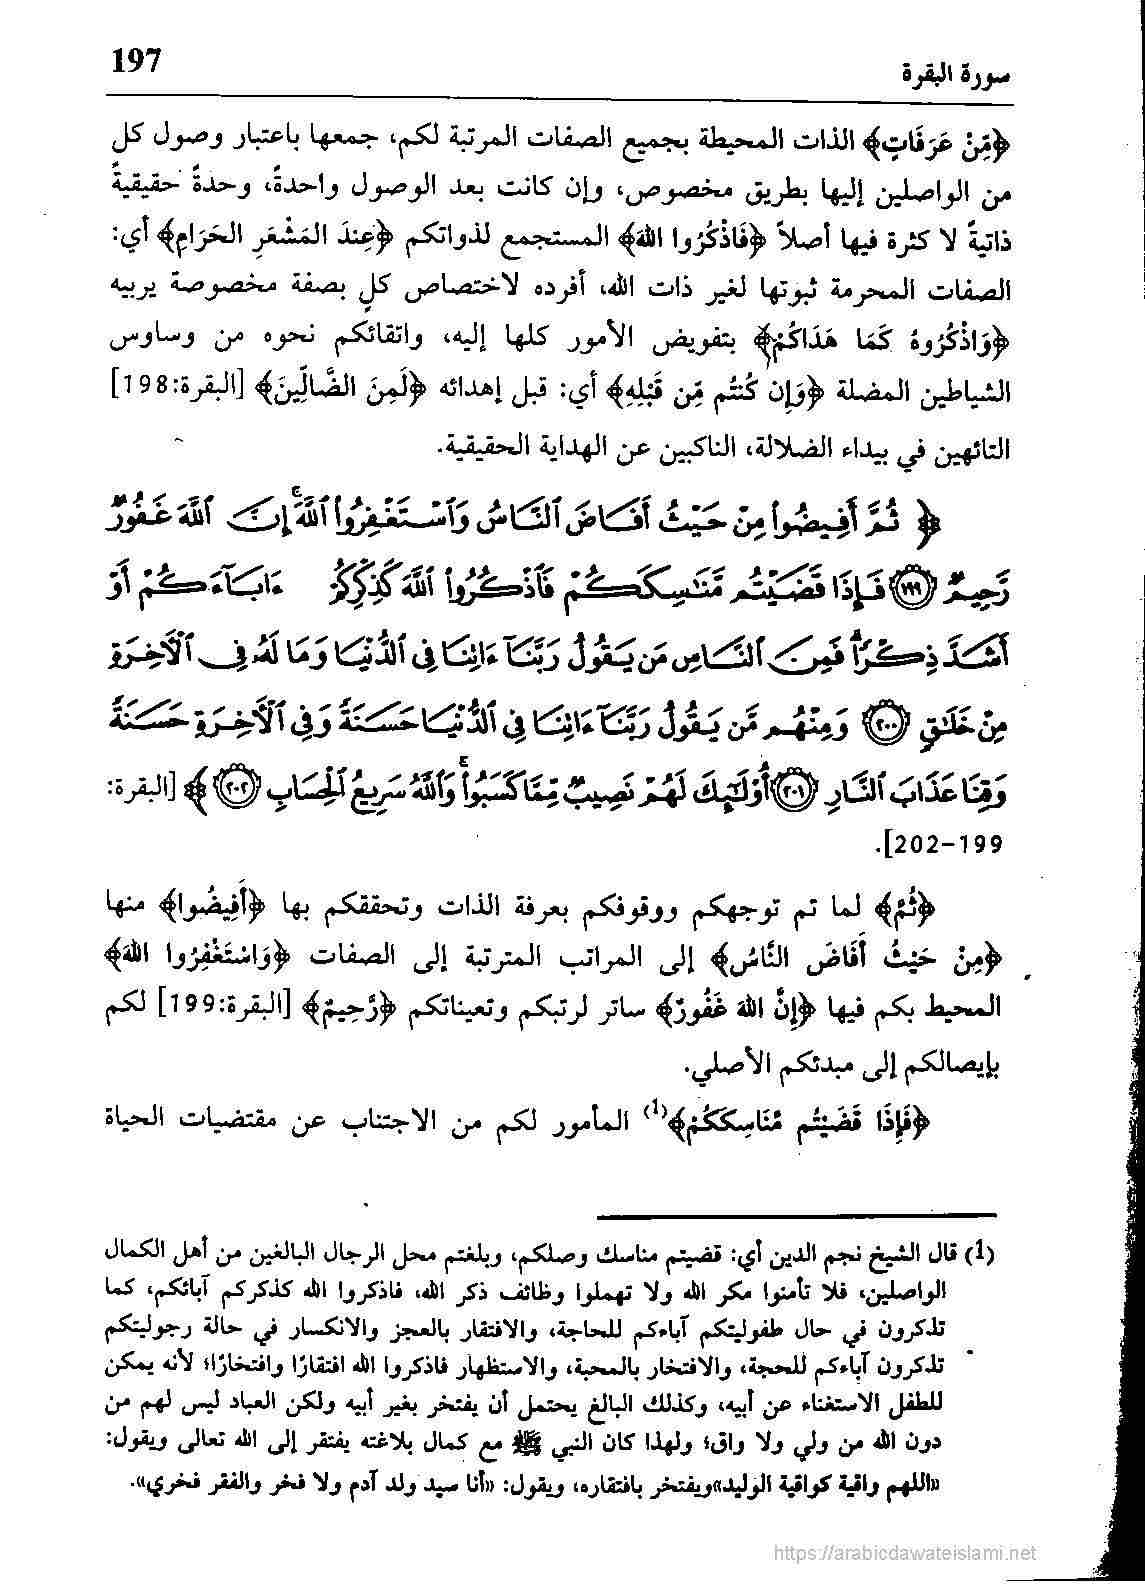 سورة البقرة
197
﴿مِّنْ عَرَفَاتٍ﴾ الذات المحيطة بجميع الصفات المرتبة لكم، جمعها باعتبار وصول كل
من الواصلين إليها بطريق مخصوص، وإن كانت بعد الوصول واحدةً، وحدةً حقيقيةً
ذاتيةً لا كثرة فيها أصلاً ﴿فَاذْكُرُوا اللهَ﴾ المستجمع لذواتكم ﴿عِندَ المَشْعَرِ الحَرَامِ﴾ أي:
الصفات المحرمة ثبوتها لغير ذات الله، أفرده لاختصاص كلٍ بصفة مخصوصة يربيه
﴿وَاذْكُرُوهُ كَمَا هَدَاكُمْ﴾ بتفويض الأمور كلها إليه، واتقائكم نحوه من وساوس
الشياطين المضلة ﴿وَإِن كُنتُم مِّن قَبْلِهِ﴾ أي: قبل إهدائه ﴿لَمِنَ الضَّالِّينَ﴾ [البقرة:198]
التائهين في بيداء الضلالة، الناكبين عن الهداية الحقيقية.
﴿ ثُمَّ أَفِيضُوا۟ مِنْ حَيْثُ أَفَاضَ ٱلنَّاسُ وَٱسْتَغْفِرُوا۟ ٱللَّهَ ۚ إِنَّ ٱللَّهَ غَفُورٌ
رَّحِيمٌ ١٩٩ فَإِذَا قَضَيْتُم مَّنَـٰسِكَكُمْ فَٱذْكُرُوا۟ ٱللَّهَ كَذِكْرِكُمْ ءَابَآءَكُمْ أَوْ
أَشَدَّ ذِكْرًا ۗ فَمِنَ ٱلنَّاسِ مَن يَقُولُ رَبَّنَآ ءَاتِنَا فِى ٱلدُّنْيَا وَمَا لَهُۥ فِى ٱلْـَٔاخِرَةِ
مِنْ خَلَـٰقٍ ٢٠٠ وَمِنْهُم مَّن يَقُولُ رَبَّنَآ ءَاتِنَا فِى ٱلدُّنْيَا حَسَنَةً وَفِى ٱلْـَٔاخِرَةِ حَسَنَةً
وَقِنَا عَذَابَ ٱلنَّارِ ٢٠١ أُو۟لَـٰٓئِكَ لَهُمْ نَصِيبٌ مِّمَّا كَسَبُوا۟ ۚ وَٱللَّهُ سَرِيعُ ٱلْحِسَابِ ٢٠٢ ﴾ [البقرة:
199-202].
﴿ثُمَّ﴾ لما تم توجهكم ووقوفكم بعرفة الذات وتحققكم بها ﴿أَفِيضُوا﴾ منها
﴿مِنْ حَيْثُ أَفَاضَ النَّاسُ﴾ إلى المراتب المترتبة إلى الصفات ﴿وَاسْتَغْفِرُوا اللهَ﴾
المحيط بكم فيها ﴿إِنَّ اللهَ غَفُورٌ﴾ ساتر لرتبكم وتعيناتكم ﴿رَّحِيمٌ﴾ [البقرة:199] لكم
بإيصالكم إلى مبدئكم الأصلي.
﴿فَإِذَا قَضَيْتُم مَّنَاسِكَكُمْ﴾(1) المأمور لكم من الاجتناب عن مقتضيات الحياة
(1) قال الشيخ نجم الدين أي: قضيتم مناسك وصلكم، وبلغتم محل الرجال البالغين من أهل الكمال
الواصلين، فلا تأمنوا مكر الله ولا تهملوا وظائف ذكر الله، فاذكروا الله كذكركم آبائكم، كما
تذكرون في حال طفوليتكم آباءكم للحاجة، والافتقار بالعجز والانكسار في حالة رجوليتكم
تذكرون آباءكم للحجة، والافتخار بالمحبة، والاستظهار فاذكروا الله افتقارًا وافتخارًا؛ لأنه يمكن
للطفل الاستغناء عن أبيه، وكذلك البالغ يحتمل أن يفتخر بغير أبيه ولكن العباد ليس لهم من
دون الله من ولي ولا واق؛ ولهذا كان النبي ﷺ مع كمال بلاغته يفتقر إلى الله تعالى ويقول:
«اللهم واقية كواقية الوليد»ويفتخر بافتقاره، ويقول: «أنا سيد ولد آدم ولا فخر والفقر فخري».
https://arabicdawateislami.net